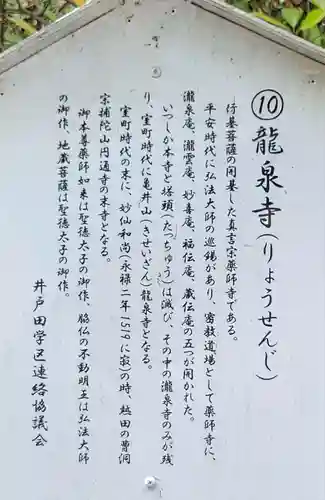 ⑩龍泉寺(りょうせんじ)
行基菩薩の開基した真言宗薬師寺である。
平安時代に弘法大師の巡錫があり、密教道場として薬師寺に、
瀧泉庵、瀧雲庵、妙喜庵、福伝庵、蔵伝庵の五つが開かれた。
いつしか本寺と塔頭(たっちゅう)は滅び、その中の瀧泉寺のみが残
り、室町時代に亀井山(きせいざん)龍泉寺となる。
室町時代の末に、妙仙和尚(永禄二年1519に寂)の時、越田の曹洞
宗補陀山円通寺の末寺となる。
御本尊薬師如来は聖徳太子の御作、脇仏の不動明王は弘法大師
の御作、地蔵菩薩は聖徳太子の御作。
井戸田学区連絡協議会